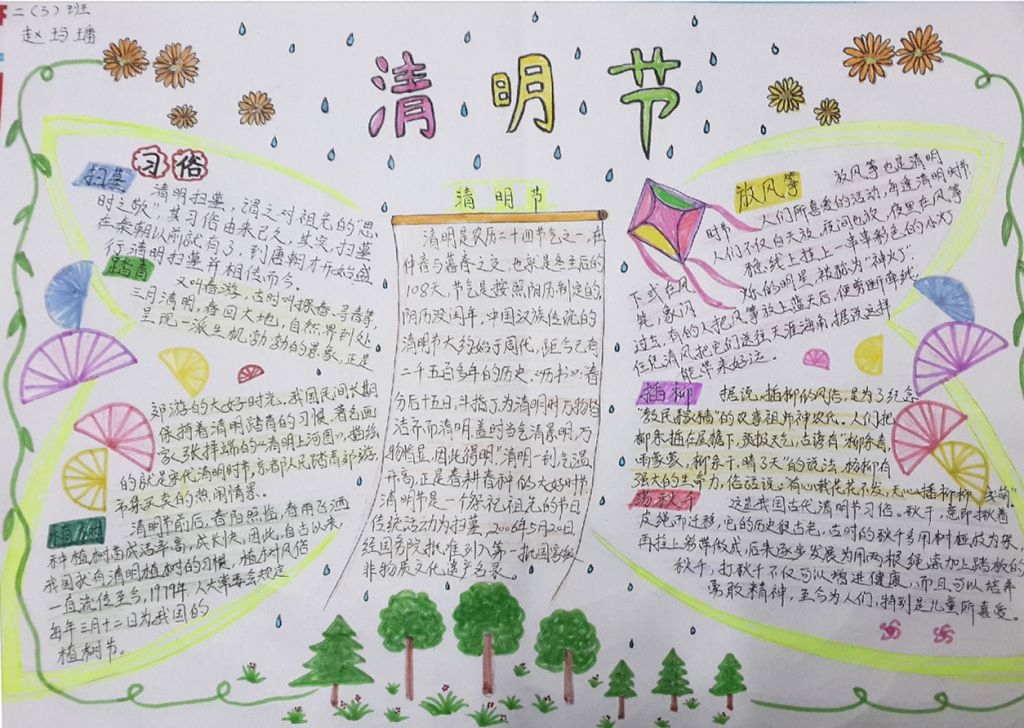 二（3）班
清明节
习俗
扫墓
清明扫墓，谓之对祖先的“思
时之敬”，其习俗由来已久，其实，扫墓
在秦朝以前就有了，到唐朝才开始盛
行，清明扫墓并相传而今。
踏青
又叫春游，古时叫探春、寻春等，
三月清明，春回大地，自然界到处
呈现一派生机勃勃的景象，正是
郊游的大好时光。我国民间长期
保持着清明踏青的习惯，著名画
家张择端的《清明上河图》，描绘
的就是宋代清明时节，百者人民踏青郊游，
市集买卖的热闹情景。
植树
清明节前后，春阳照临，春雨飞洒
种植树苗成活率高，成长快，因此，自古以来，
我国就有清明植树的习惯，植树风俗
一直流传至今，1979年，人大常委会规定
每年三月十二日为我国的
植树节。
清明节
清明是农历二十四节气之一，在
仲春与暮春之交，也就是冬至后的
108天，节气是按照阳历制定的，
阴历没闰年，中国汉族传统的
清明节大约始于周代，距今已有
二千五百多年的历史，《历书》：春
分后十五日，斗指丁，为清明，时万物皆
洁齐而清明，盖时当气清景明，万
物皆显，因此得明“清明一到，气温
升高，正是春耕春种的大好时节
清明节是一个祭祀祖先的节日
传统活动为扫墓，2006年5月20日，
经国务院批准列入第一批国家级
非物质文化遗产名录。
放风筝
放风筝也是清明
时节人们所喜爱的活动，每逢清明时节
人们不仅白天放，夜间也放，夜里在风筝
下或台风稳线上挂上一串串彩色的小灯
笼，象闪烁的明星，被称为“神灯”
过去，有的人把风筝放上蓝天后，便剪断牵线，
任凭清风把它们送往天涯海角，据说这样
能带来好运。
插柳
据说，插柳的风俗，是为了纪念
“教民稼穑”的农事祖师神农氏。人们把
柳条插在屋檐下，预报天气，古谚有“柳条青，
雨蒙蒙，柳条干，晴了天”的说法，杨柳有
强大的生命力，俗话说：“有心栽花花不发，无心插柳柳成荫”。
荡秋千
这是我国古代清明节习俗。秋千，意即揪着
皮绳而迁移，它的历史很古老，古时的秋千多用树桠枝为架，
再拴上彩带做成，后来逐步发展为用两根绳索加上踏板的
秋千，打秋千不仅可以增进健康，而且可以培养
勇敢精神，至今为人们，特别是儿童所喜爱。